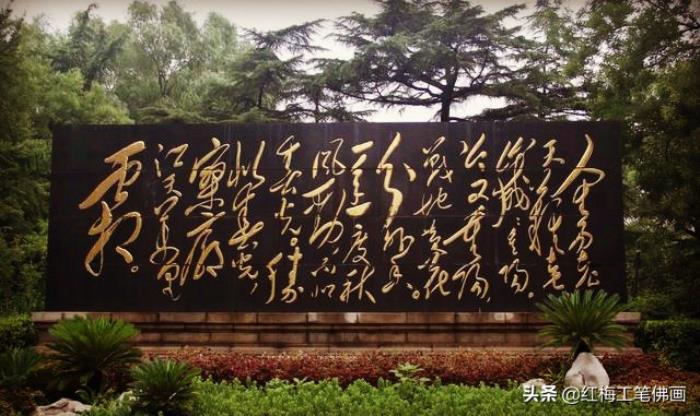 人生易老
天難老
歲歲重陽
今又重陽，
戰地黄花
分外香。
一年一度秋
風勁不似
春光。勝
似春光，
寥廓
江天萬里
霜。
头条 @红梅工笔佛画